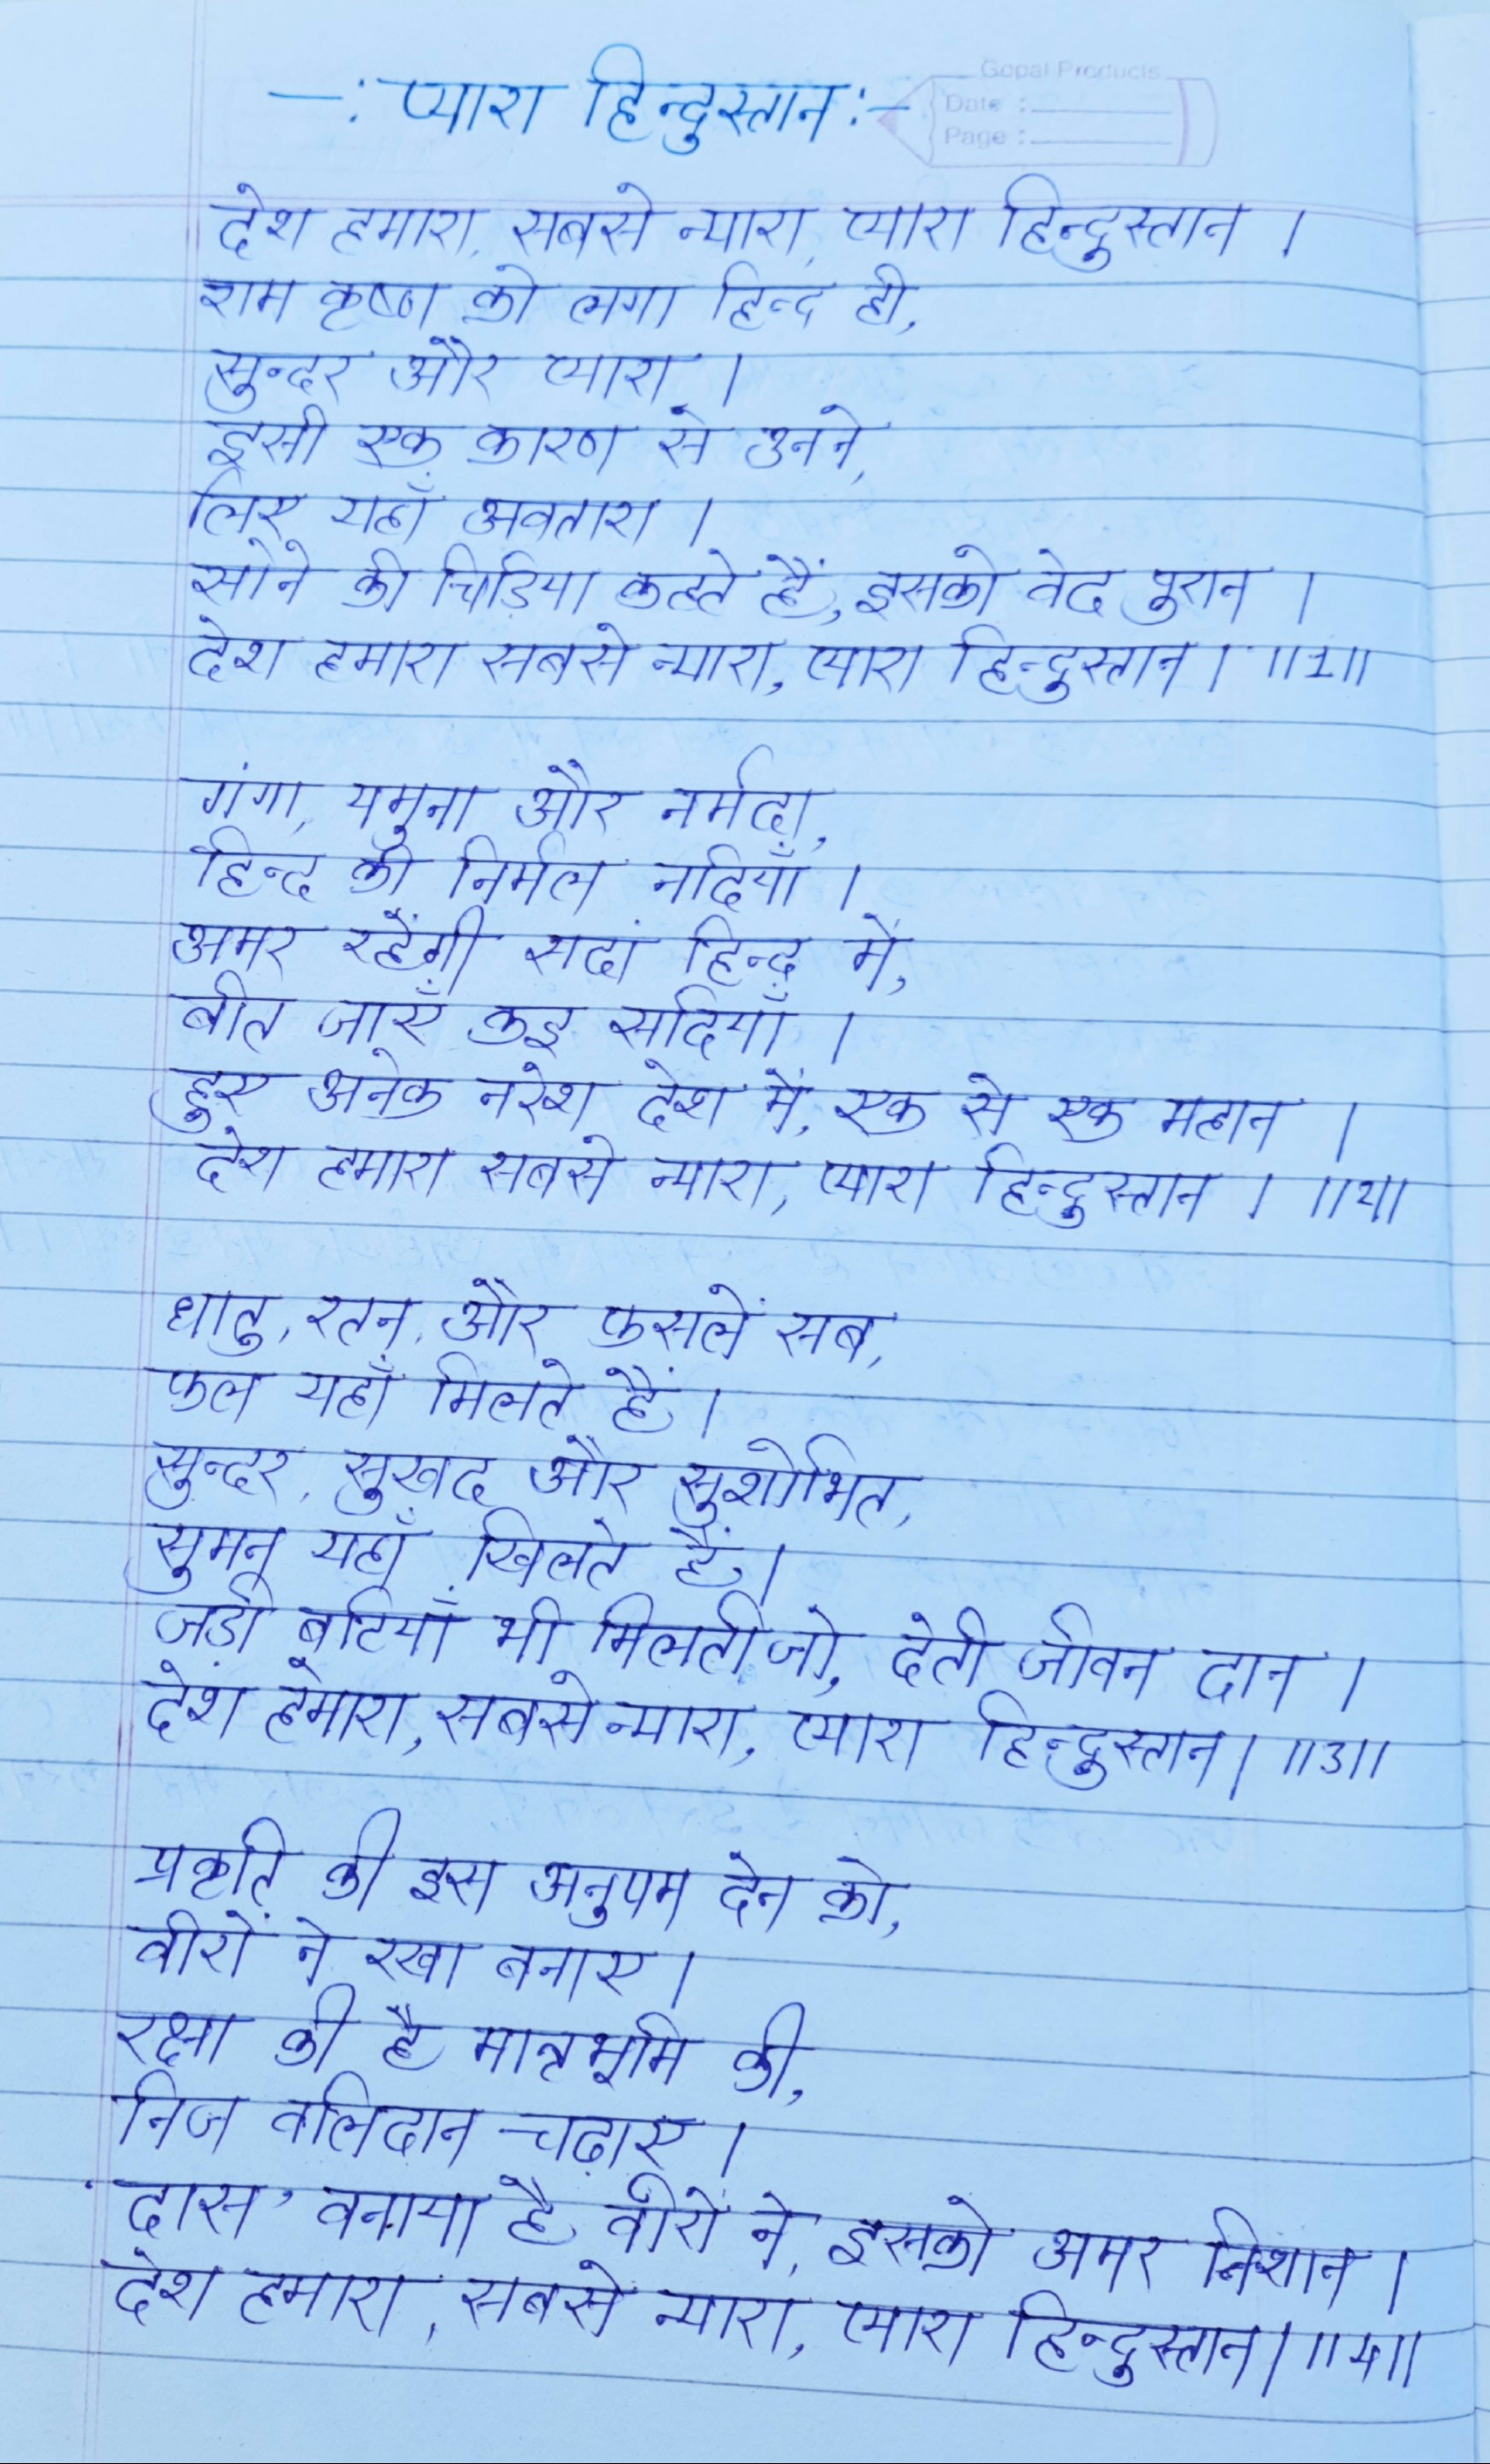 -: प्यारा हिन्दुस्तान :-
Gopal Products
Date :
Page :
देश हमारा, सबसे न्यारा, प्यारा हिन्दुस्तान ।
राम कृष्ण को लगा हिन्द ही,
सुन्दर और प्यारा ।
इसी एक कारण से उनने,
लिए यहाँ अवतारा ।
सोने की चिड़िया कहते हैं, इसको वेद पुरान ।
देश हमारा सबसे न्यारा, प्यारा हिन्दुस्तान । ॥1॥
गंगा, यमुना और नर्मदा,
हिन्द की निर्मल नदियाँ ।
अमर रहैंगी सदां हिन्द में,
बीत जाएँ कइ सदियाँ ।
हुए अनेक नरेश देश में, एक से एक महान ।
देश हमारा सबसे न्यारा, प्यारा हिन्दुस्तान । ॥2॥
धातु, रतन, और फसलें सब,
फल यहाँ मिलते हैं ।
सुन्दर, सुखद और सुशोभित,
सुमन यहाँ खिलते हैं ।
जड़ी बूटियाँ भी मिलती जो, देती जीवन दान ।
देश हमारा, सबसे न्यारा, प्यारा हिन्दुस्तान । ॥3॥
प्रकृति की इस अनुपम देन को,
वीरों ने रखा बनाए ।
रक्षा की है मातृभूमि की,
निज वलिदान चढ़ाए ।
'दास' वनाया है वीरों ने, इसको अमर निशान ।
देश हमारा, सबसे न्यारा, प्यारा हिन्दुस्तान । ॥4॥